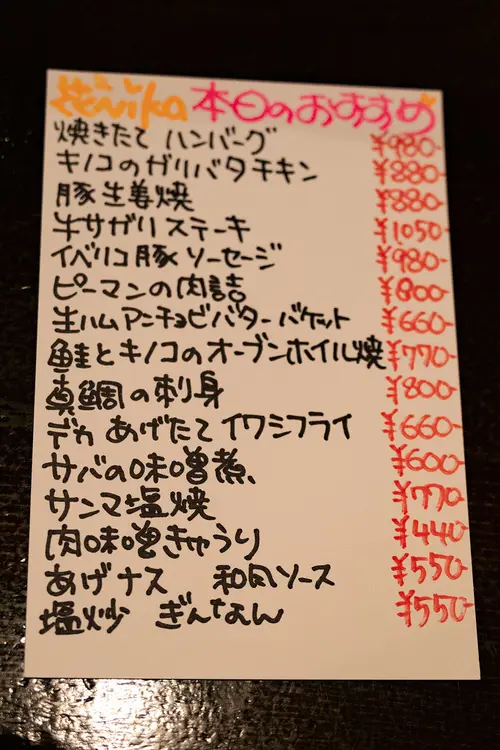 本日のおすすめ
焼きたて ハンバーグ ¥980-
キノコのガリバタチキン ¥880-
豚生姜焼 ¥880-
牛サガリステーキ ¥1050-
イベリコ豚ソーセージ ¥980-
ピーマンの肉詰 ¥800-
生ハムアンチョビバターバケット ¥660-
鮭とキノコのオーブンホイル焼 ¥770-
真鯛の刺身 ¥800-
デカ あげたて イワシフライ ¥660-
サバの味噌煮、 ¥600-
サンマ塩焼 ¥770-
肉味噌きゅうり ¥440-
あげナス 和風ソース ¥550-
塩炒 ぎんなん ¥550-